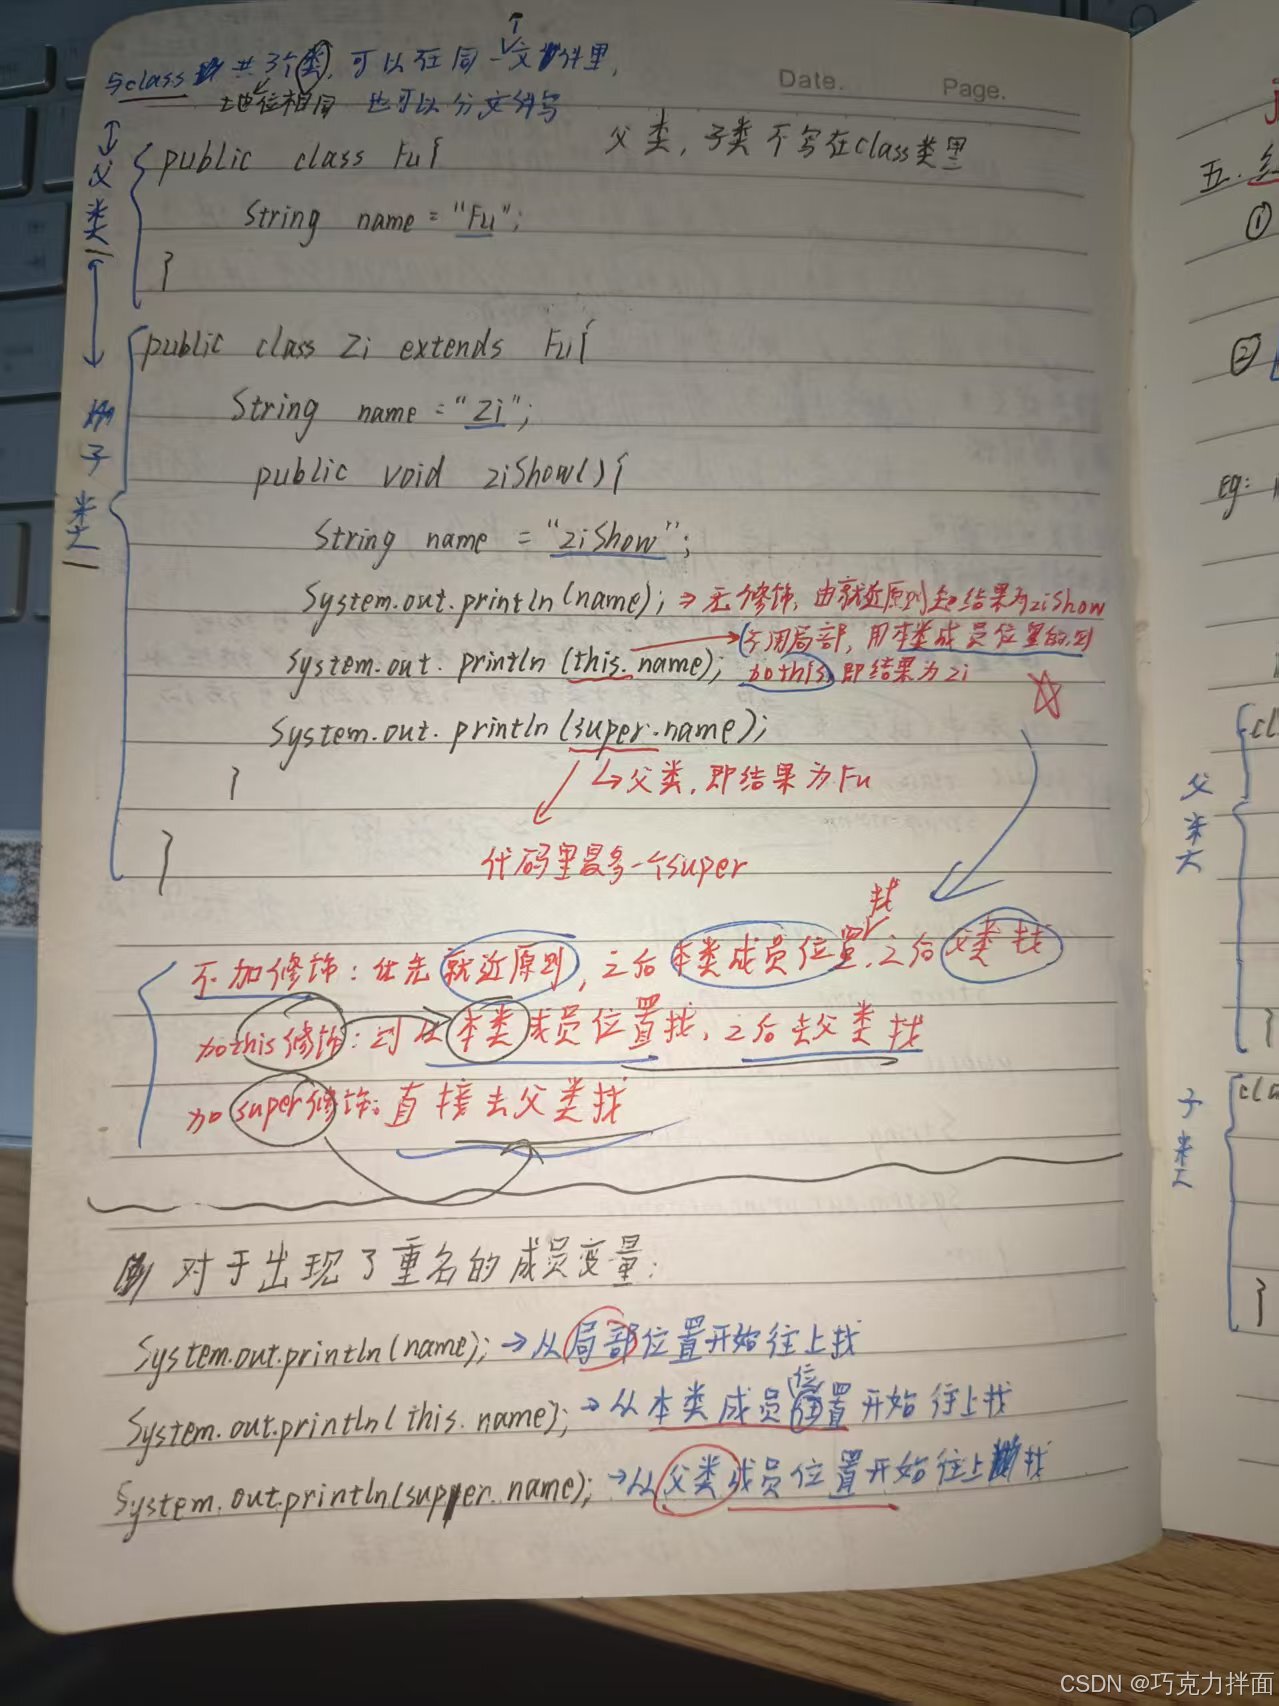 与class 共3个类, 可以在同一文件里,
地位相同 也可以分文件写
Date. Page.
父类, 子类不写在class类里
父类
public class Fu{
String name = "Fu";
}
子类
public class Zi extends Fu{
String name = "Zi";
public void ziShow(){
String name = "ziShow";
System.out.println(name); → 无修饰, 由就近原则知结果为ziShow
System.out.println(this.name); → 不用局部, 用本类成员位置的则
加this, 即结果为Zi
System.out.println(super.name);
}
↳父类, 即结果为Fu
代码里最多一个super
}
不加修饰: 优先就近原则, 之后本类成员位置找, 之后父类找
加this修饰: 从本类成员位置找, 之后去父类找
加super修饰: 直接去父类找
对于出现了重名的成员变量:
System.out.println(name); → 从局部位置开始往上找
System.out.println(this.name); → 从本类成员位置开始往上找
System.out.println(super.name); → 从父类成员位置开始往上找
五.
①
②
eg:
父类
cl
}
子类
cla
}
CSDN @巧克力拌面